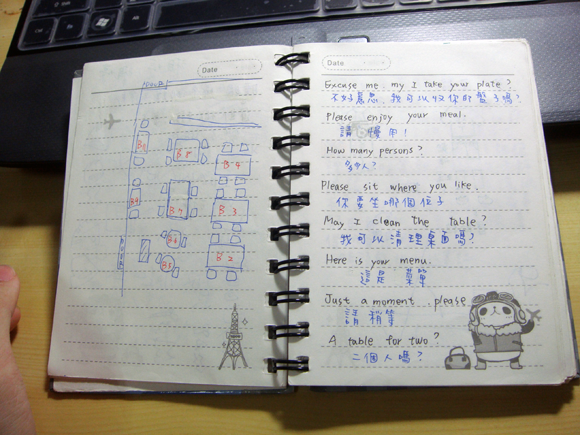 Date
B8
B9
B7
B3
B6
B5
B2
Date
Excuse me, my I take your plate?
不好意思,我可以收你的盤子嗎?
Please enjoy your meal.
請慢用!
How many persons?
多少人?
Please sit where you like.
你要坐哪個位子
May I clean the table?
我可以清理桌面嗎?
Here is your menu.
這是 菜單
Just a moment please
請稍等
A table for two?
二個人嗎?